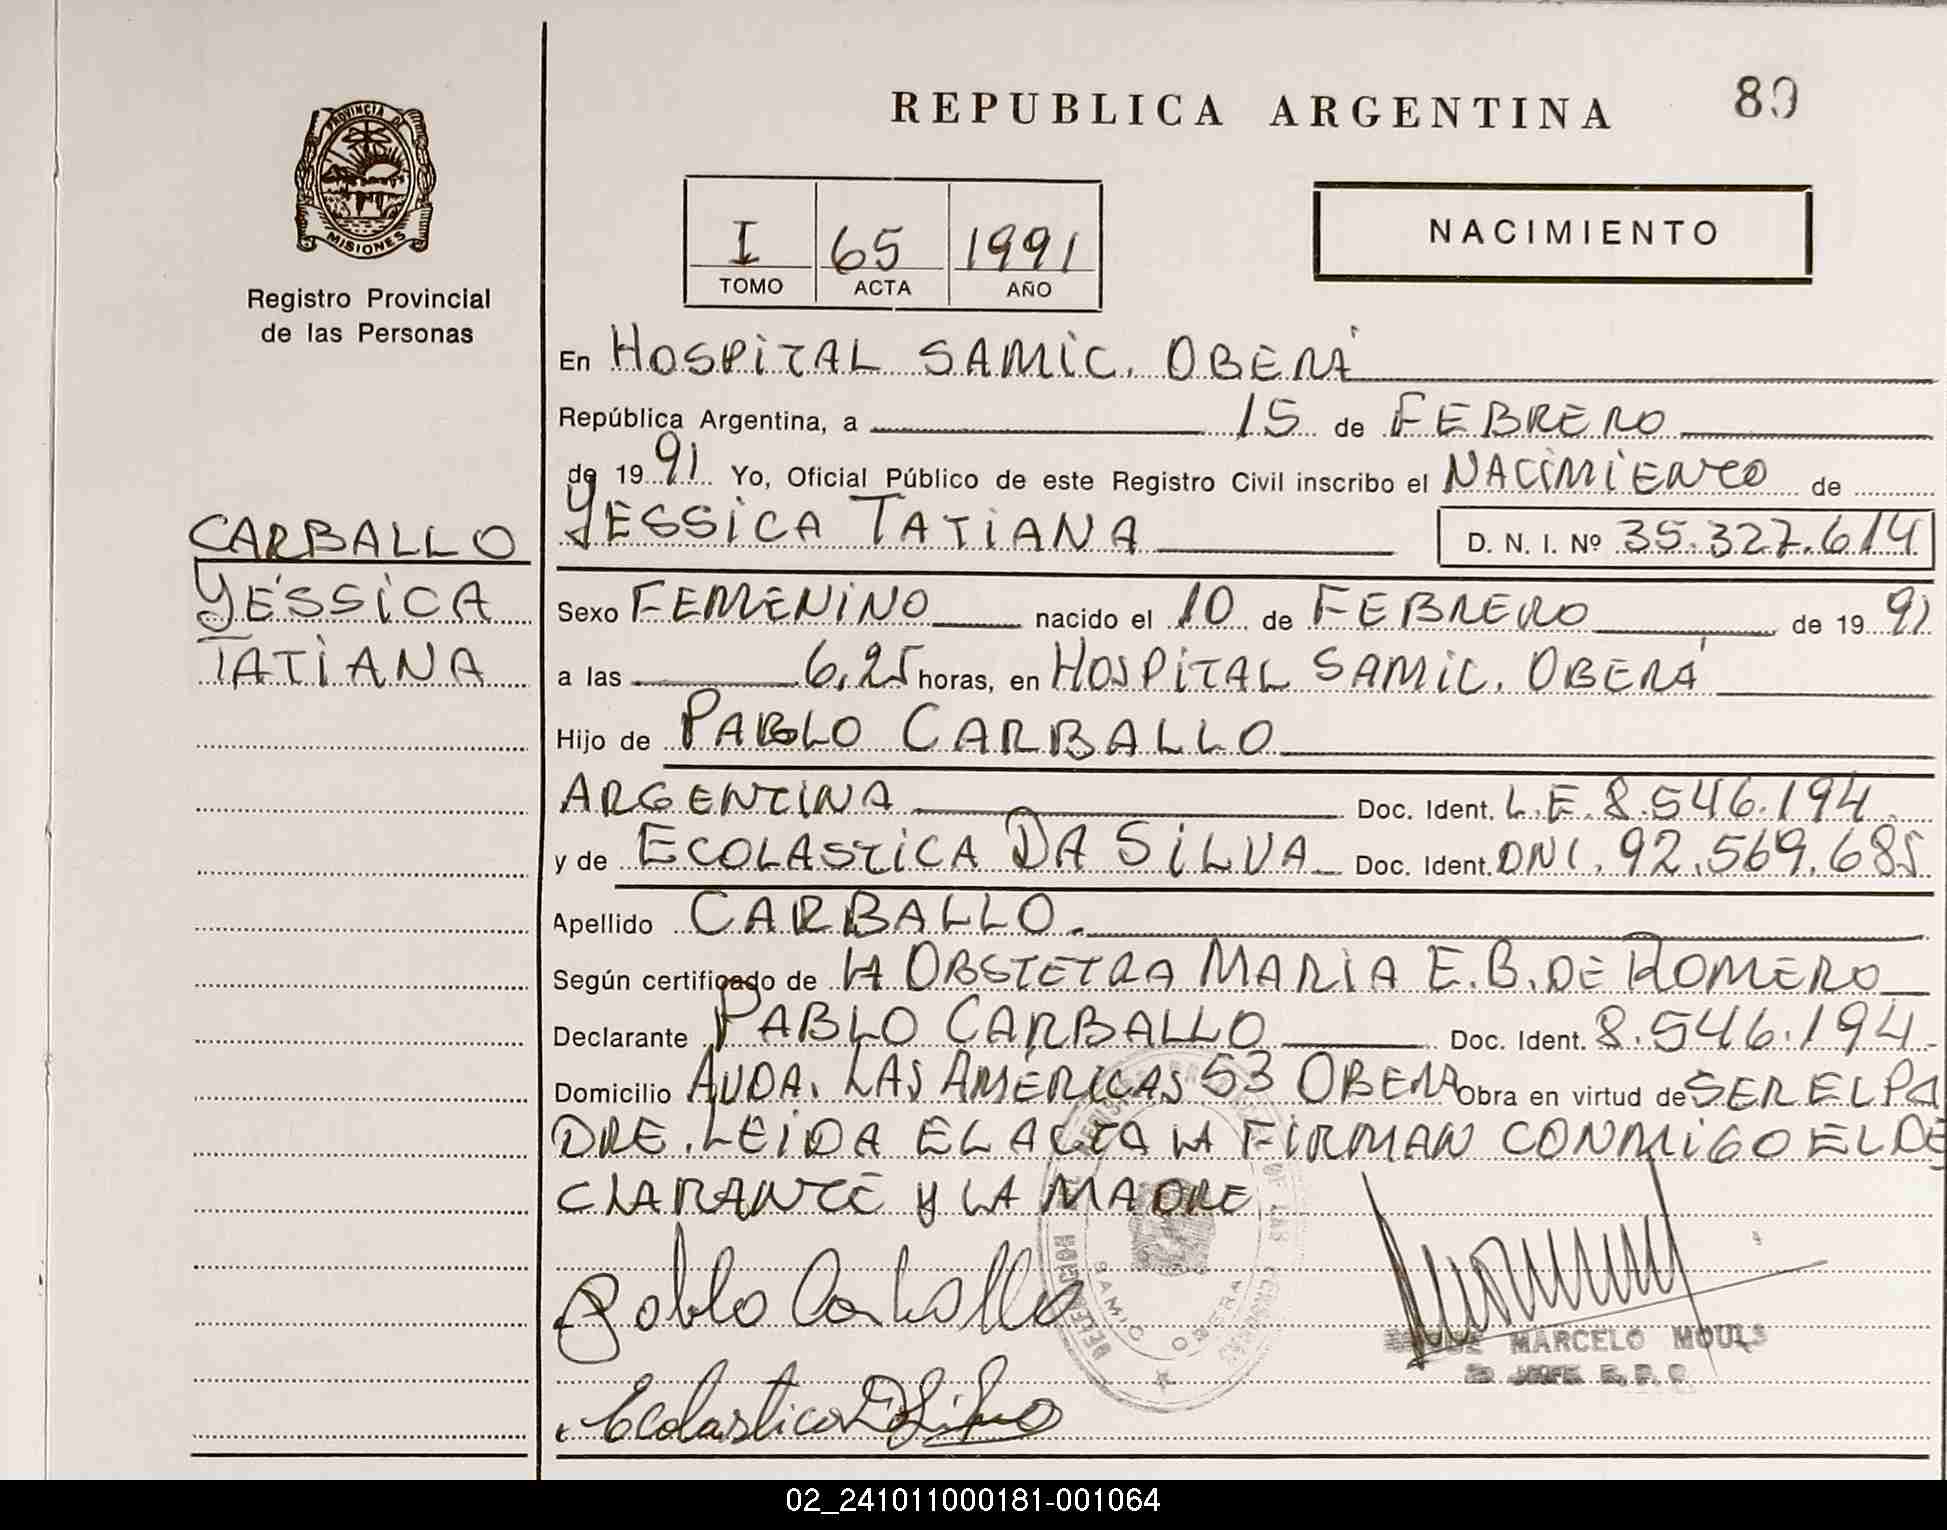 REPUBLICA ARGENTINA
89
PROVINCIA DE
MISIONES
Registro Provincial
de las Personas
I 65 1991
TOMO ACTA AÑO
NACIMIENTO
En HOSPITAL SAMIC. OBERÁ
República Argentina, a 15 de FEBRERO
de 1991 Yo, Oficial Público de este Registro Civil inscribo el NACIMIENTO de
YESSICA TATIANA D. N. I. Nº 35.327.614
CARBALLO
YÉSSICA
TATIANA
Sexo FEMENINO nacido el 10 de FEBRERO de 1991
a las 6,25 horas, en HOSPITAL SAMIC. OBERÁ
Hijo de PABLO CARBALLO
ARGENTINA Doc. Ident. L.E. 8.546.194
y de ECOLASTICA DA SILVA Doc. Ident. DNI. 92.569.685
Apellido CARBALLO.
Según certificado de LA OBSTETRA MARIA E.B. DE ROMERO
Declarante PABLO CARBALLO Doc. Ident. 8.546.194
Domicilio AVDA. LAS AMERICAS 53 OBERA Obra en virtud de SER EL PA
DRE. LEIDA EL ACTA LA FIRMAN CONMIGO EL DE
CLARANTE Y LA MADRE
Pablo Carballo
SAMIC OBERA
MARCELO MOULS
Ecolastica Da Silva
02_241011000181-001064